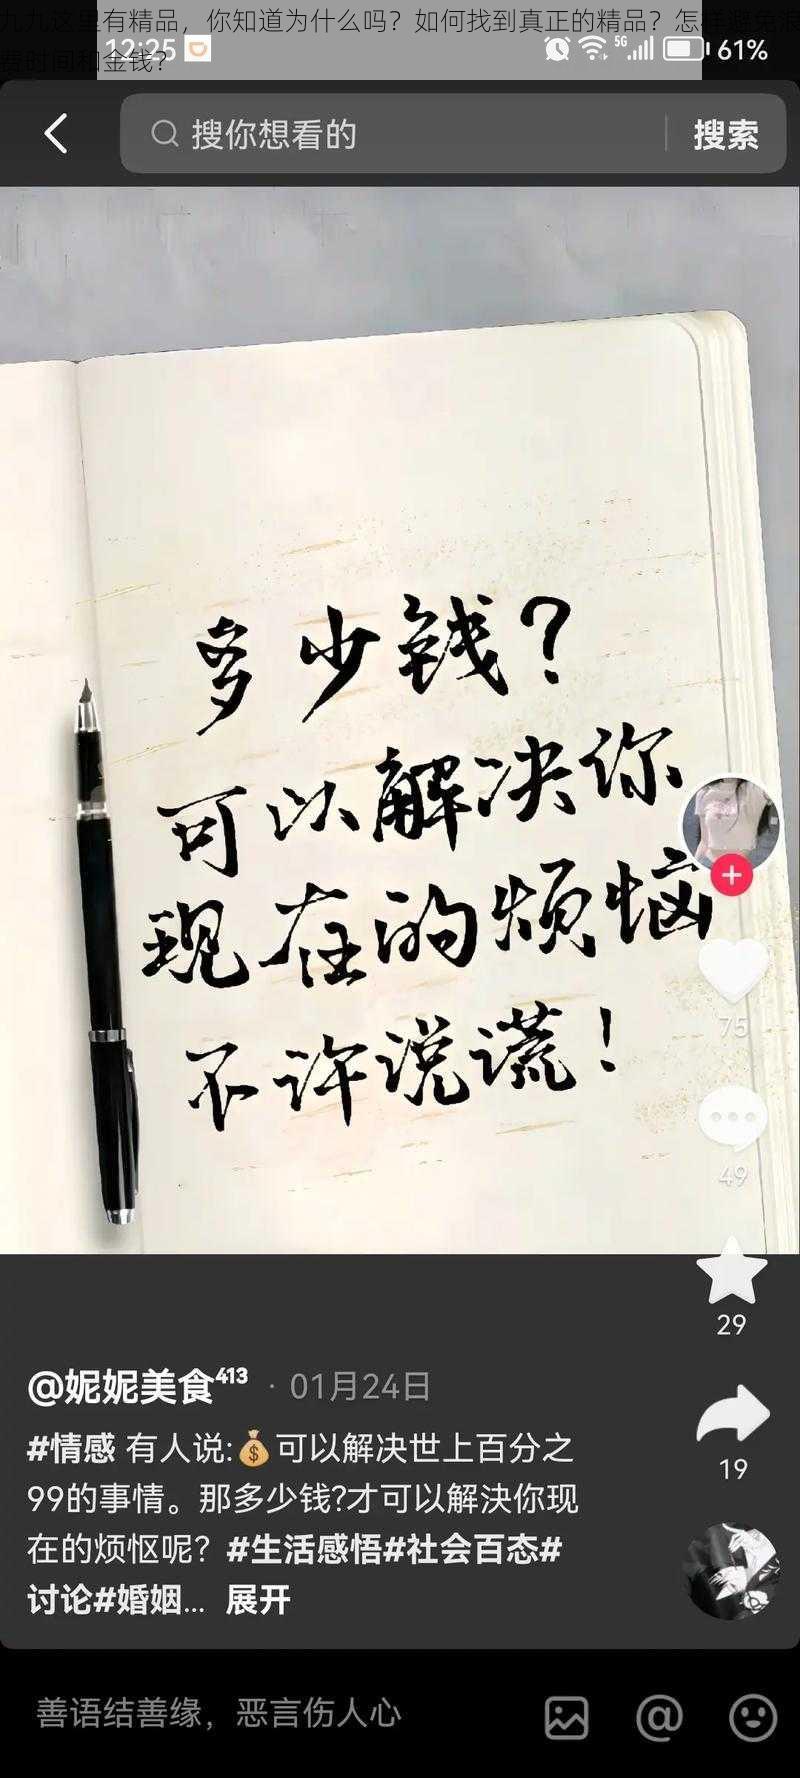 九九这里有精品，你知道为什么吗？如何找到真正的精品？怎样避免浪
费时间和金钱？
12:25 5G 61%
搜你想看的 搜索
多少钱？
可以解决你
现在的烦恼
不许说谎！
75
49
29
19
@妮妮美食413 · 01月24日
#情感 有人说:💰可以解决世上百分之
99的事情。那多少钱?才可以解決你现
在的烦怄呢？#生活感悟#社会百态#
讨论#婚姻... 展开
善语结善缘，恶言伤人心